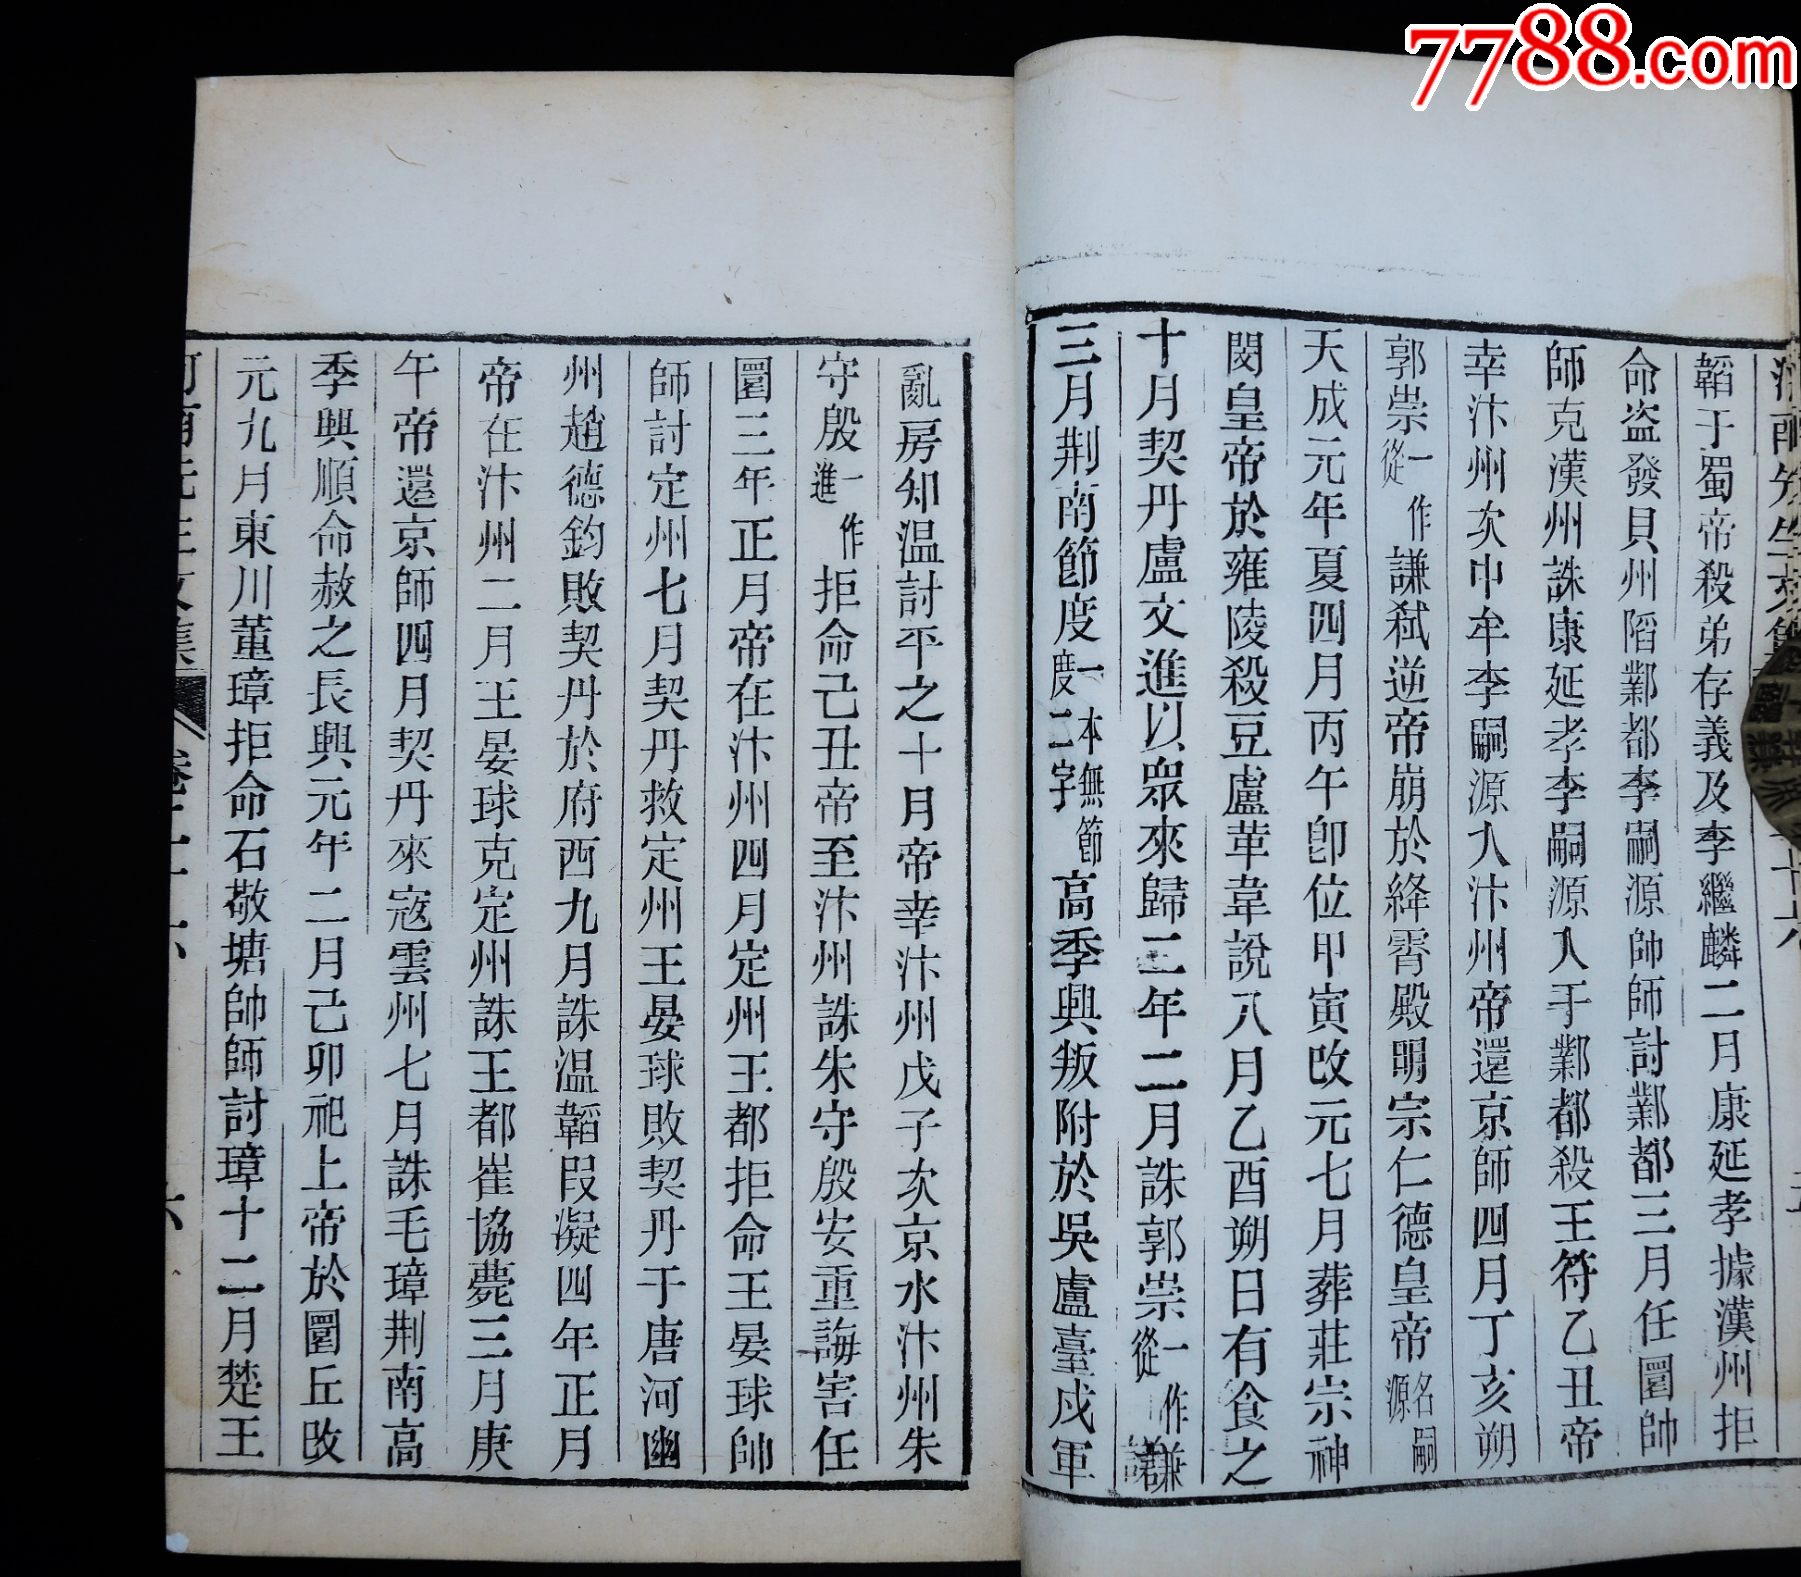 7788.com
韜于蜀帝殺弟存義及李繼麟二月康延孝據漢州拒
命盗發貝州陷鄴都李嗣源帥師討鄴都三月任圜帥
師克漢州誅康延孝李嗣源入于鄴都殺王符乙丑帝
幸汴州次中牟李嗣源入汴州帝還京師四月丁亥朔
郭崇一作從謙弑逆帝崩於絳霄殿明宗仁德皇帝名嗣源
天成元年夏四月丙午卽位甲寅改元七月葬莊宗神
閔皇帝於雍陵殺豆盧革韋說八月乙酉朔日有食之
十月契丹盧文進以眾來歸二年二月誅郭崇一作從謙謙
三月荆南節度一本無節度二字高季興叛附於吳盧臺戍軍
亂房知温討平之十月帝幸汴州戊子次京水汴州朱
守殷一作進拒命己丑帝至汴州誅朱守殷安重誨害任
圜三年正月帝在汴州四月定州王都拒命王晏球帥
師討定州七月契丹救定州王晏球敗契丹于唐河幽
州趙德鈞敗契丹於府西九月誅温韜叚凝四年正月
帝在汴州二月王晏球克定州誅王都崔協薨三月庚
午帝還京師四月契丹來寇雲州七月誅毛璋荆南高
季興順命赦之長興元年二月己卯祀上帝於圜丘改
元九月東川董璋拒命石敬塘帥師討璋十二月楚王
河南先生文集 卷二十六 六